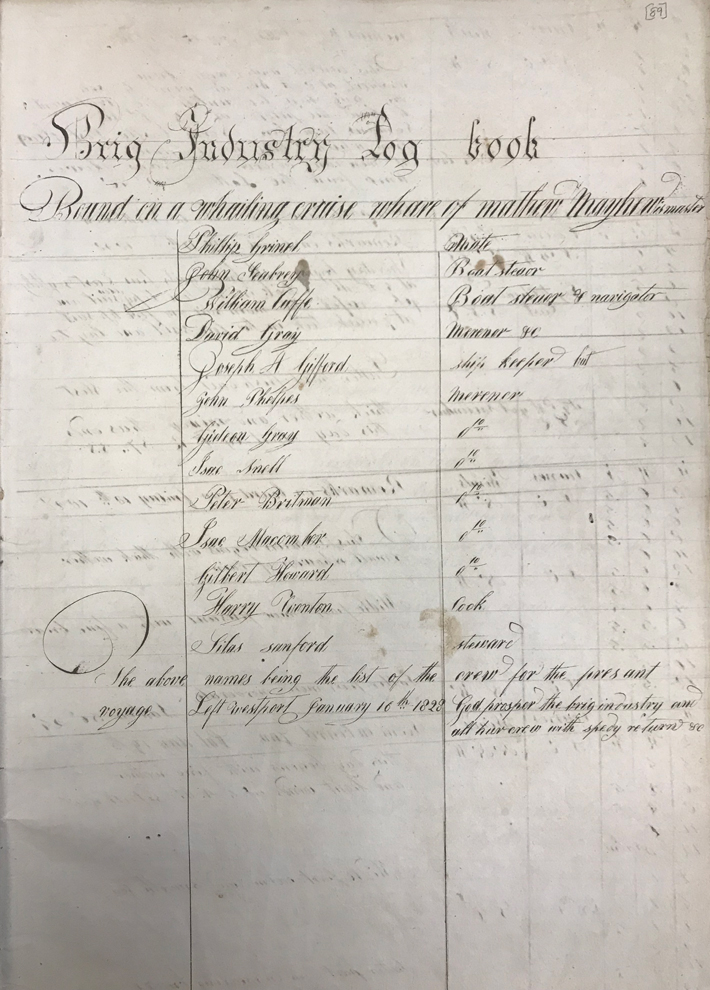 [89]
Brig Industry Log book
Bound on a whailing cruise wheare of mathew Mayhew is master
Phillip Grinel Mate
John Seabrey Boat stearor
William Cuffe Boat stearer & navigator
David Gray Merener &c
Joseph A Gifford ship keeper but
John Phelpes Merener
Gideon Gray Do
Isac Snell Do
Peter Britman Do
Isac Macomber Do
Gilbert Howard Do
Harry Cook
Silas sanford steward
The above names being the list of the crew for the presant
voyage Left westport January 10th 1828 God prosper the brig industry and
all hur crew with spedy return &c